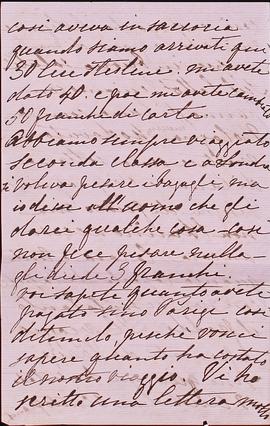 così aveva in saccoria
quando siamo arrivati qui
30 lire sterline mi avete
dato 40. e poi mi avete cambi
50 franchi di carta.
abbiamo sempre viaggiato
seconda classa e a Londra
si voleva pesare i bagagli, ma
io dissi all'uomo che gli
darei qualche cosa - così
non fece pesare nulla -
gli diede 3 franchi.
voi sapete quanto avete
pagato sino Parigi così
ditemelo perchè vorrei
sapere quanto ha costato
il nostro viaggio. Vi ho
scritto una lettera